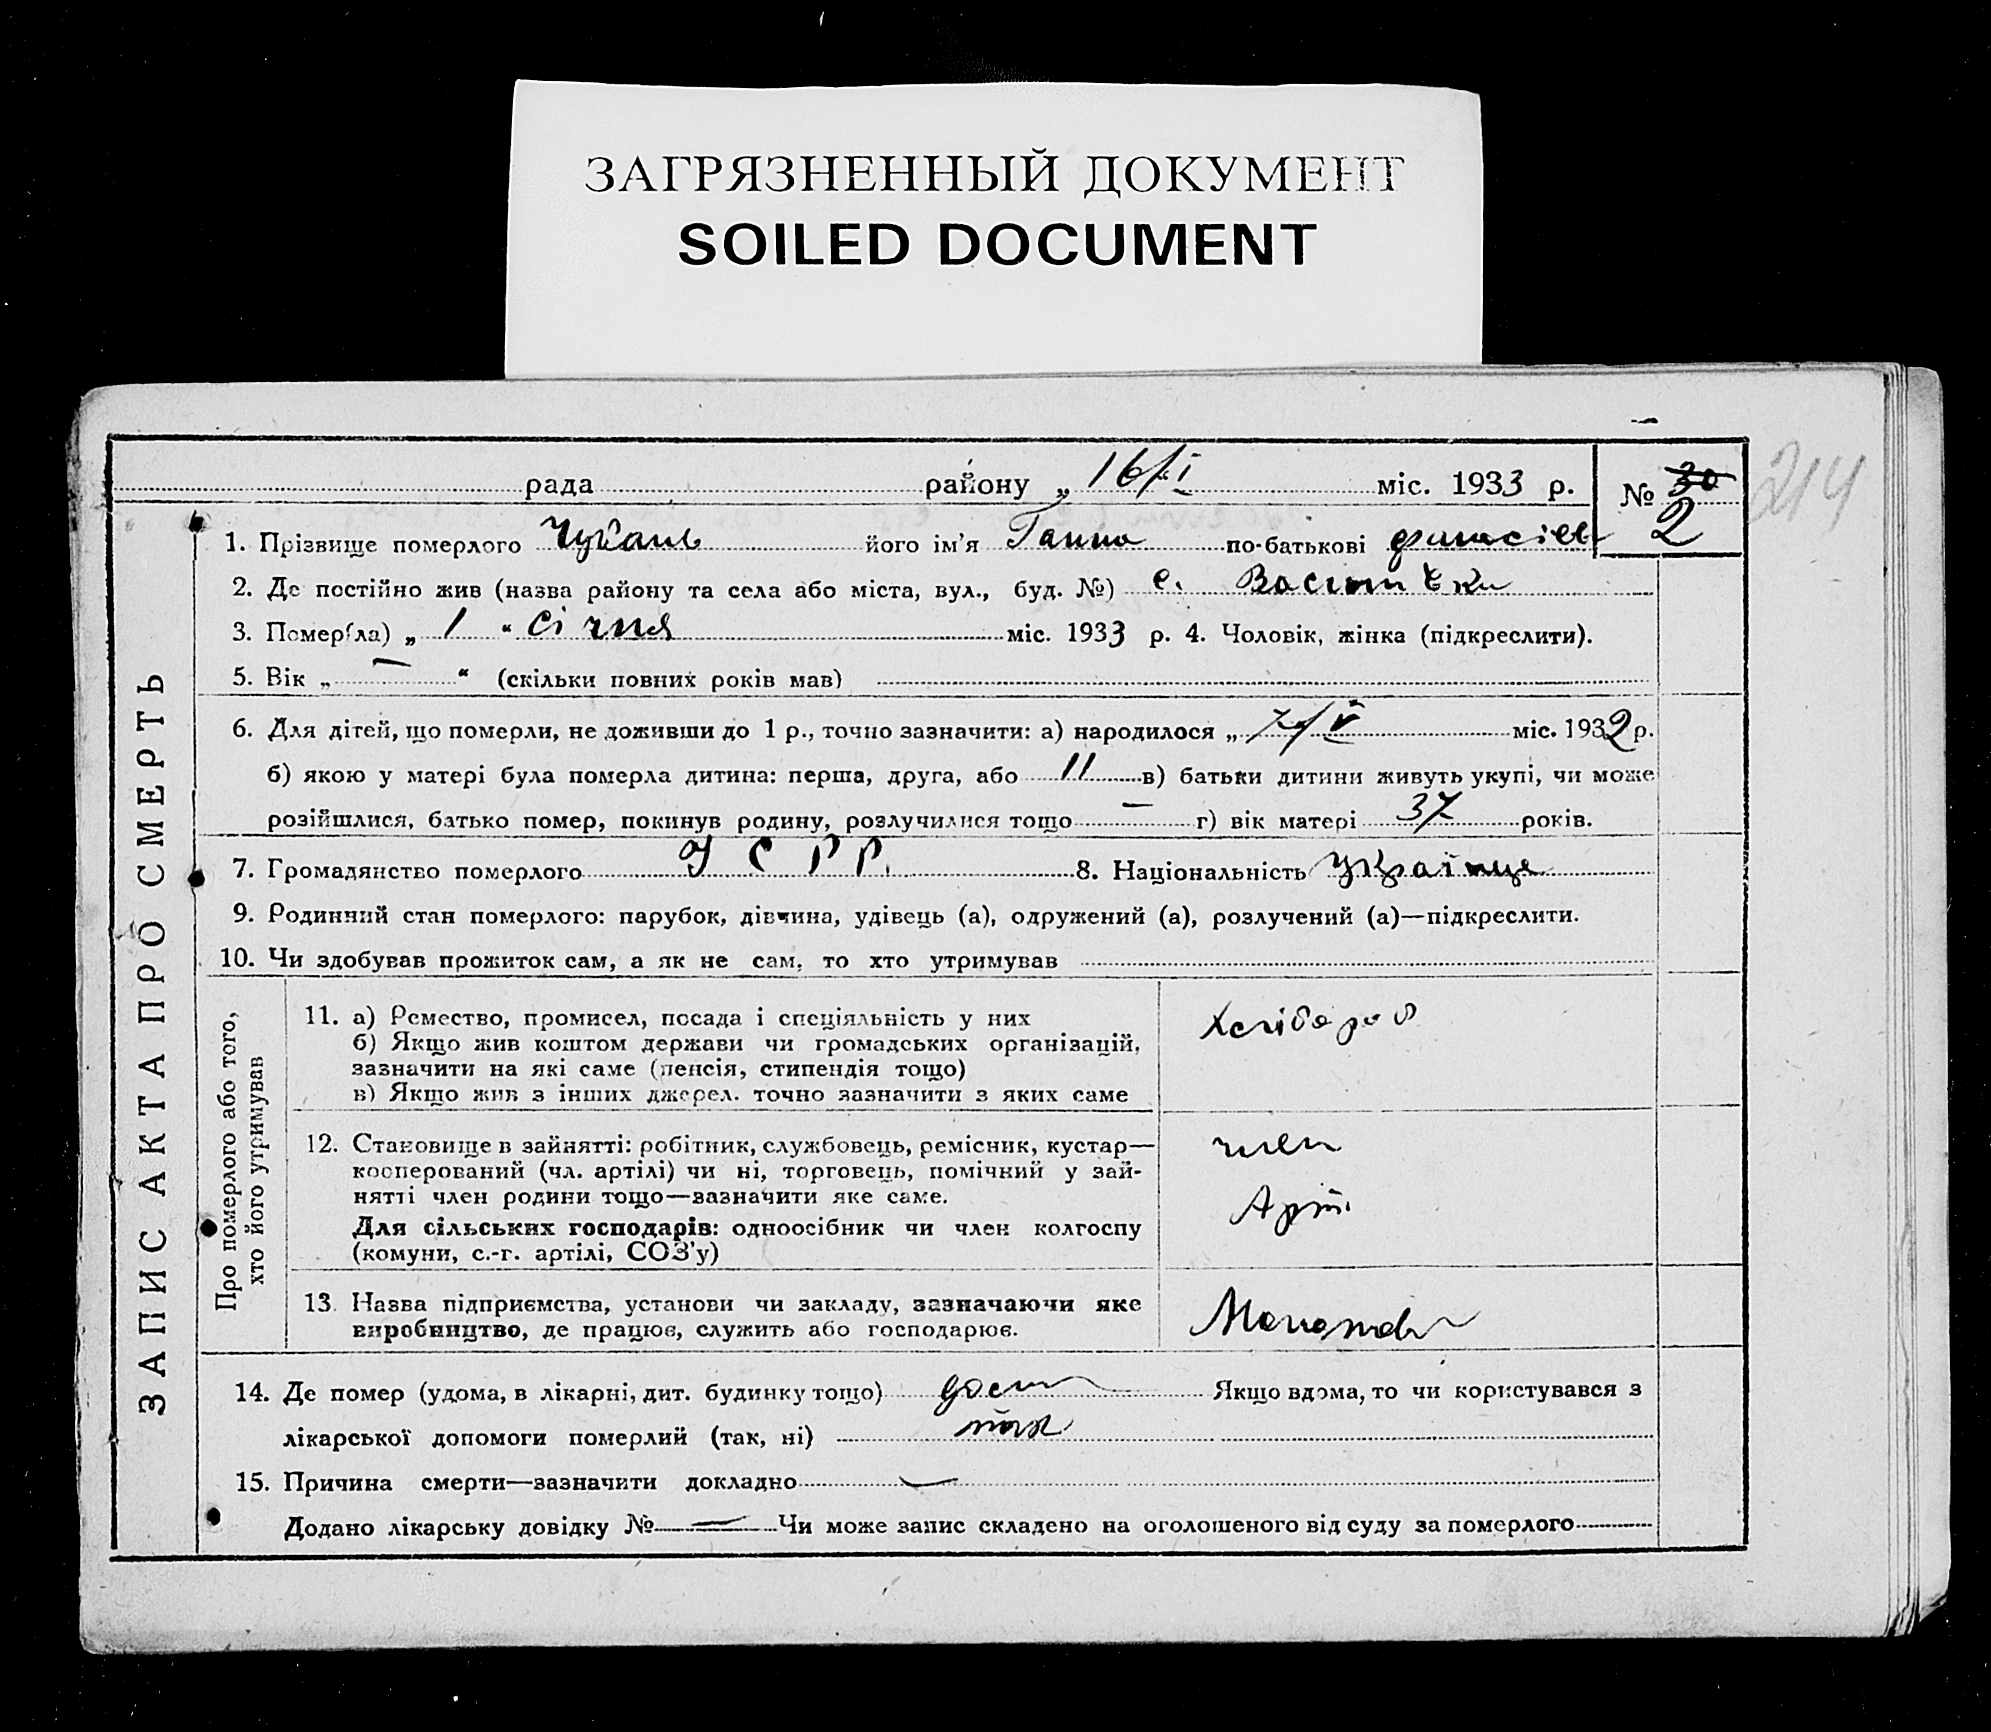 ЗАГРЯЗНЕННЫЙ ДОКУМЕНТ
SOILED DOCUMENT
214
рада району „ 16/I міс. 1933 р. № 30
2
1. Прізвище померлого його ім'я Ганна по-батькові
2. Де постійно жив (назва району та села або міста, вул., буд. №) с.
3. Помер(ла) „ 1 “ Січня міс. 1933 р. 4. Чоловік, жінка (підкреслити).
5. Вік „ — “ (скільки повних років мав)
6. Для дітей, що померли, не доживши до 1 р., точно зазначити: а) народилося „ 7/V міс. 1932 р.
б) якою у матері була померла дитина: перша, друга, або 11 в) батьки дитини живуть укупі, чи може
розійшлися, батько помер, покинув родину, розлучилися тощо — г) вік матері 37 років.
7. Громадянство померлого УСРР. 8. Національність Українце
9. Родинний стан померлого: парубок, дівчина, удівець (а), одружений (а), розлучений (а)—підкреслити.
10. Чи здобував прожиток сам, а як не сам, то хто утримував
ЗАПИС АКТА ПРО СМЕРТЬ
Про померлого або того,
хто його утримував
11. а) Ремество, промисел, посада і спеціяльність у них
б) Якщо жив коштом держави чи громадських організацій,
зазначити на які саме (пенсія, стипендія тощо)
в) Якщо жив з інших джерел. точно зазначити з яких саме
Хлібороб
12. Становище в зайнятті: робітник, службовець, ремісник, кустар—
кооперований (чл. артілі) чи ні, торговець, помічний у зай-
нятті член родини тощо—зазначити яке саме.
Для сільських господарів: одноосібник чи член колгоспу
(комуни, с.-г. артілі, СОЗ'у)
член
Арт.
13. Назва підприємства, установи чи закладу, зазначаючи яке
виробництво, де працює, служить або господарює.
14. Де помер (удома, в лікарні, дит. будинку тощо) Якщо вдома, то чи користувався з
лікарської допомоги померлий (так, ні) так
15. Причина смерти—зазначити докладно —
Додано лікарську довідку № — Чи може запис складено на оголошеного від суду за померлого